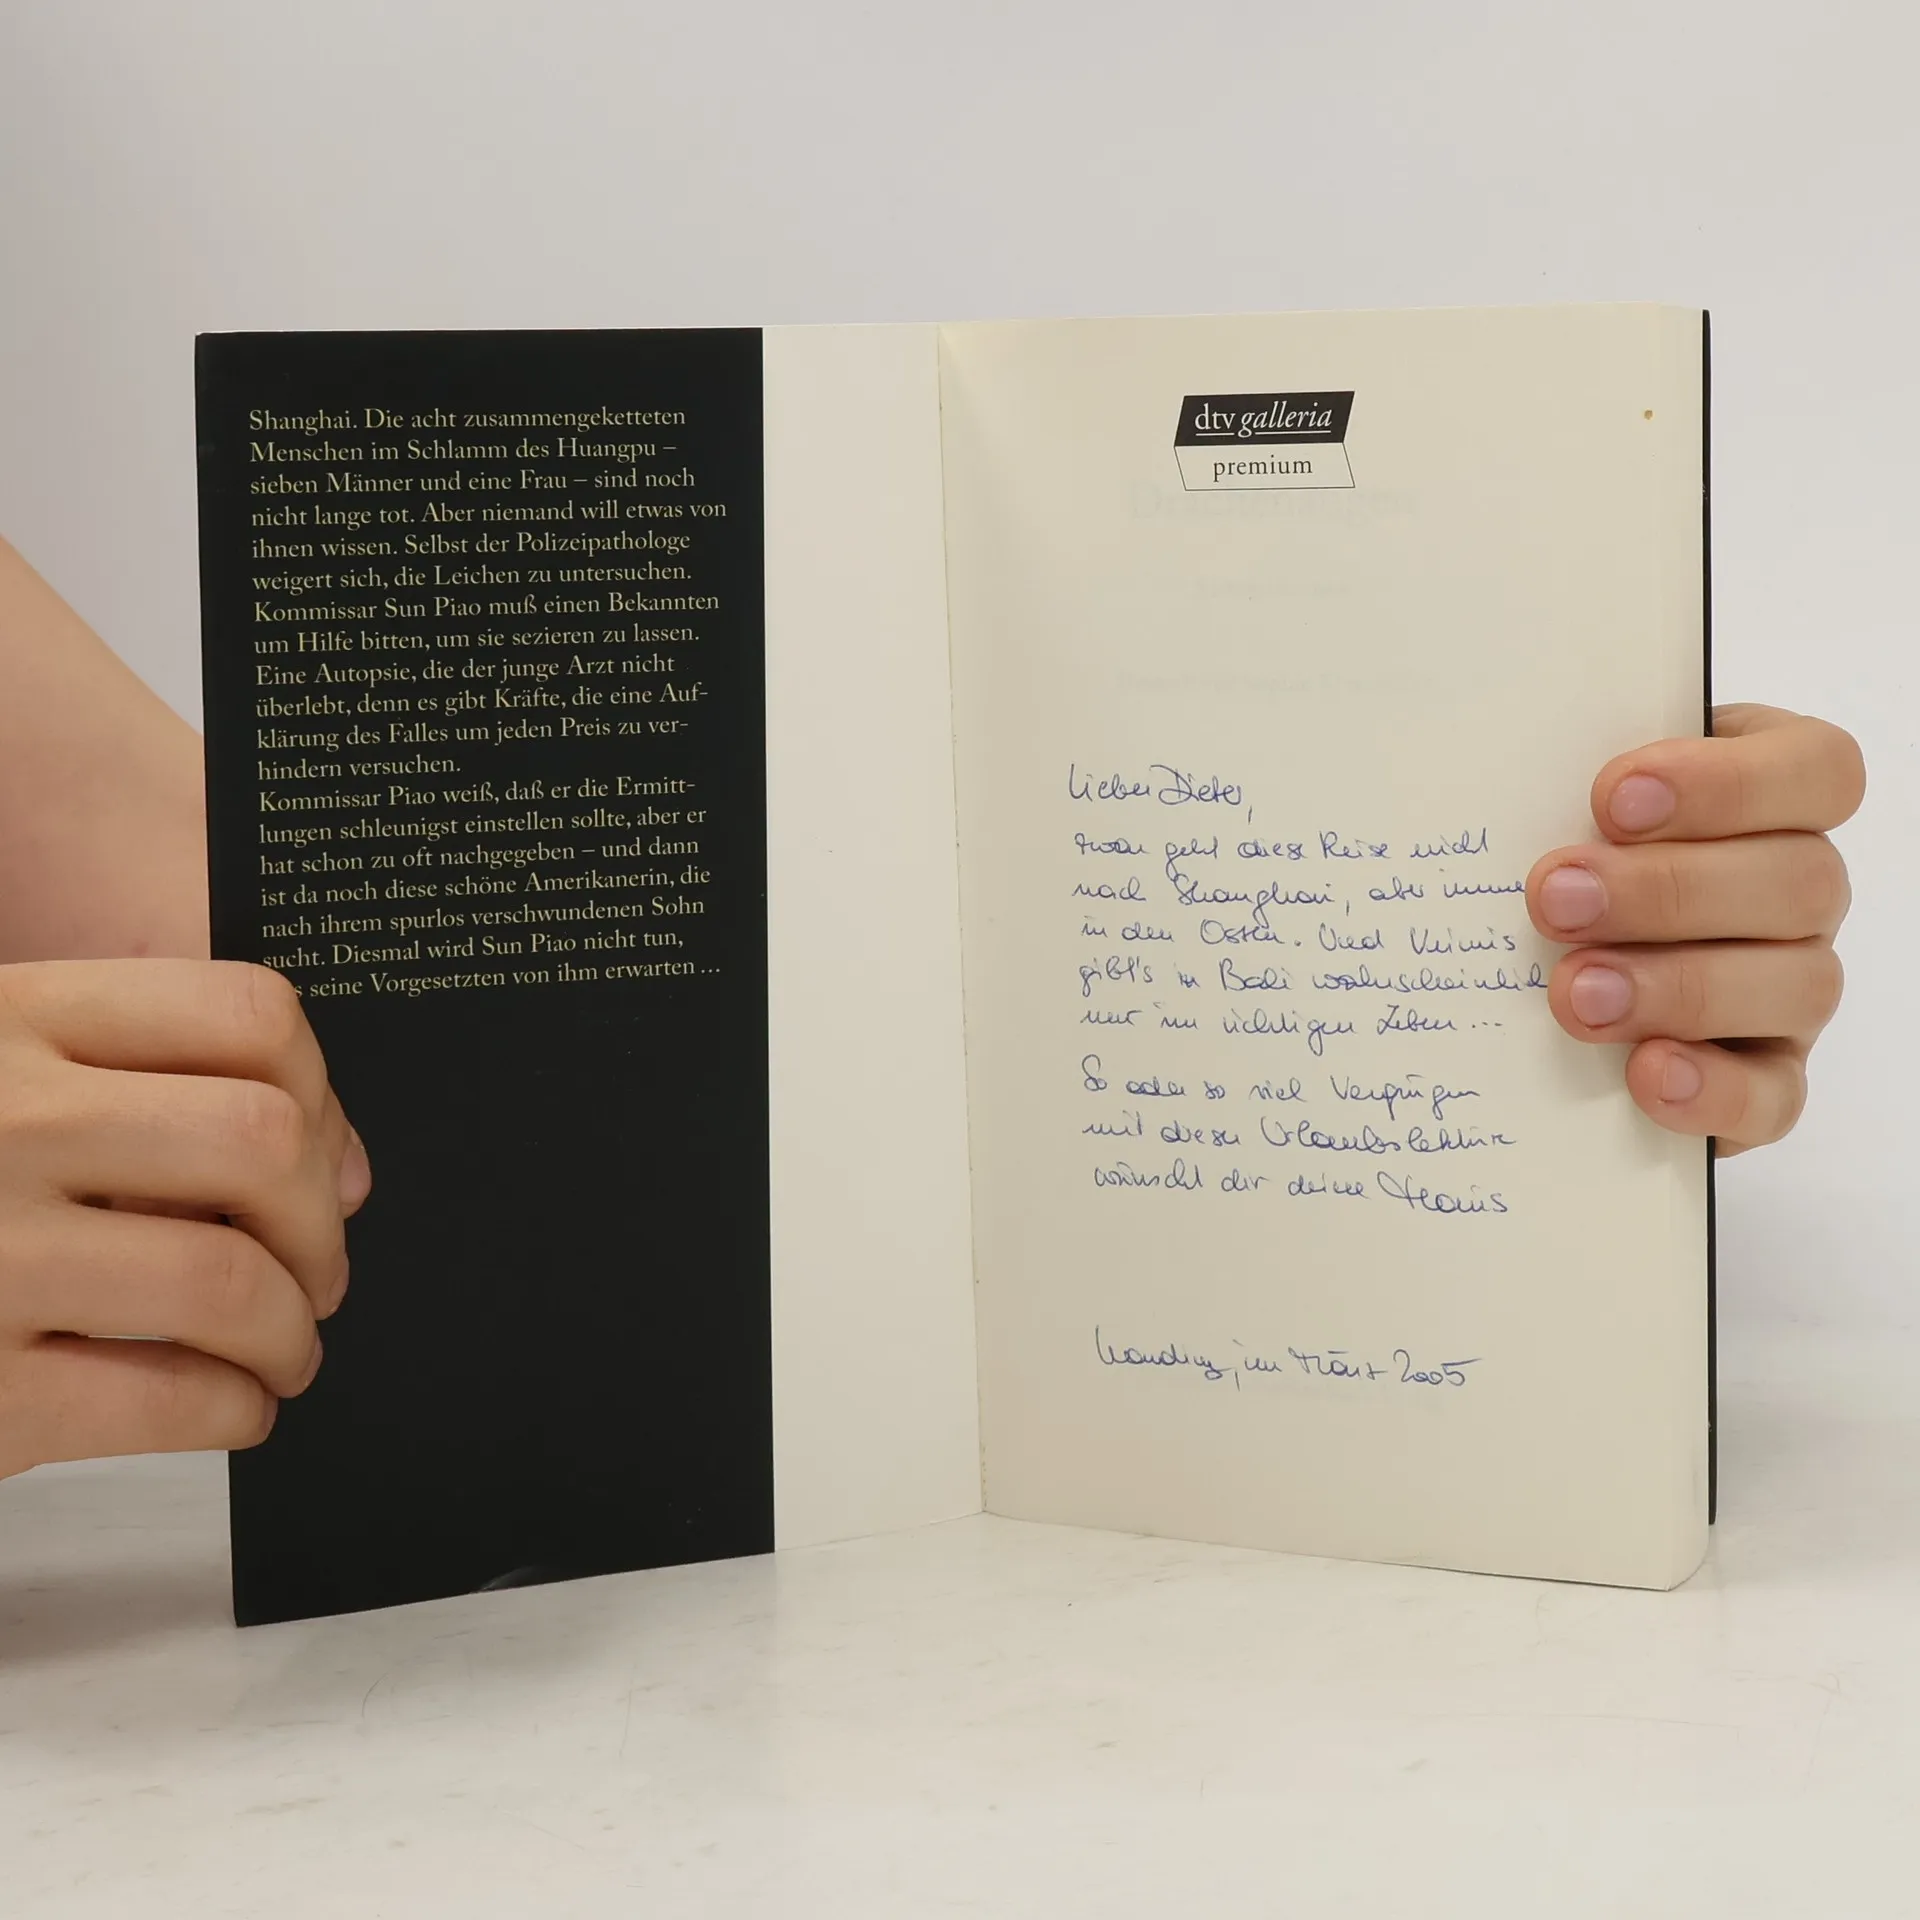 Shanghai. Die acht zusammengeketteten
Menschen im Schlamm des Huangpu –
sieben Männer und eine Frau – sind noch
nicht lange tot. Aber niemand will etwas von
ihnen wissen. Selbst der Polizeipathologe
weigert sich, die Leichen zu untersuchen.
Kommissar Sun Piao muß einen Bekannten
um Hilfe bitten, um sie sezieren zu lassen.
Eine Autopsie, die der junge Arzt nicht
überlebt, denn es gibt Kräfte, die eine Auf-
klärung des Falles um jeden Preis zu ver-
hindern versuchen.
Kommissar Piao weiß, daß er die Ermitt-
lungen schleunigst einstellen sollte, aber er
hat schon zu oft nachgegeben – und dann
ist da noch diese schöne Amerikanerin, die
nach ihrem spurlos verschwundenen Sohn
sucht. Diesmal wird Sun Piao nicht tun,
s seine Vorgesetzten von ihm erwarten ...
dtv galleria
premium
Lieber Dieter,
zwar geht diese Reise nicht
nach Shanghai, aber imme
in den Osten. Und Krimis
gibt's in Bali wahrscheinlich
nur im richtigen Leben ...
So oder so viel Vergnügen
mit dieser Urlaubslektüre
wünscht dir deine
im März 2005